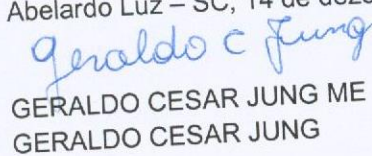 Abelardo Luz – SC, 14 de
Geraldo C Jung
GERALDO CESAR JUNG ME
GERALDO CESAR JUNG